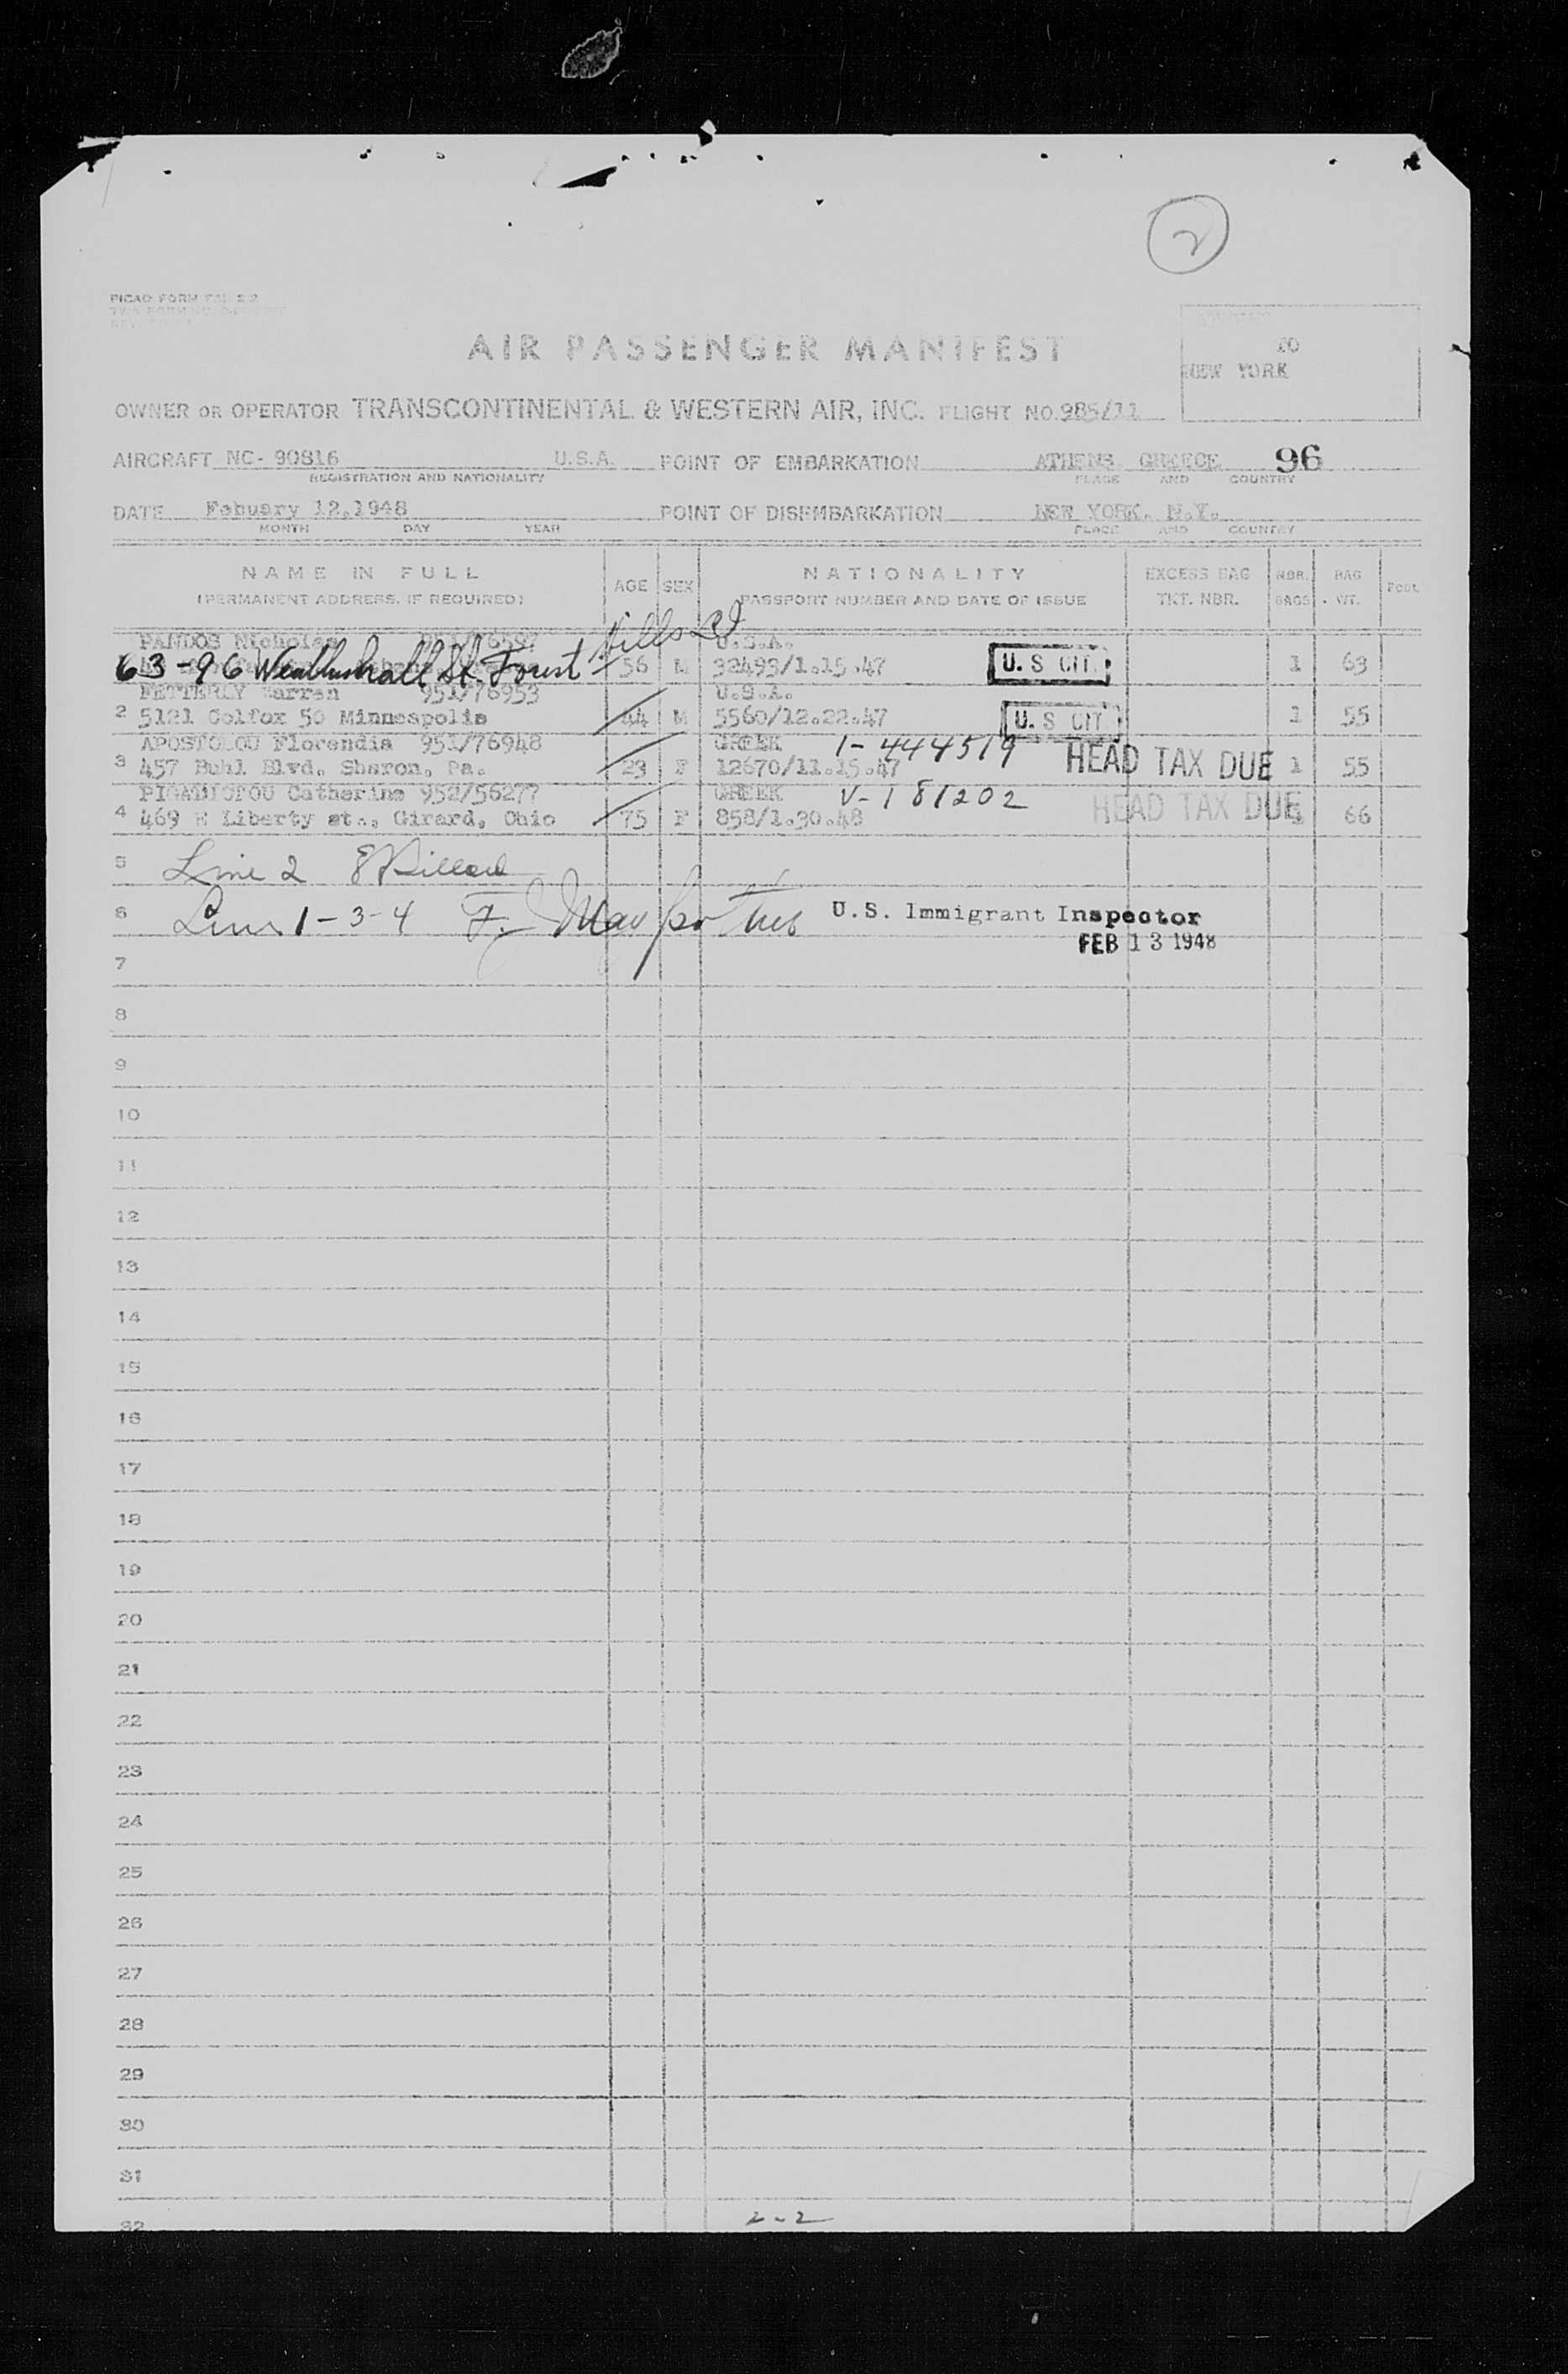 2
PICAO FORM FAL 2.2
AIR PASSENGER MANIFEST
20
NEW YORK
OWNER OR OPERATOR TRANSCONTINENTAL & WESTERN AIR, INC. FLIGHT NO. 985/11
AIRCRAFT NC- 90816 U.S.A. POINT OF EMBARKATION ATHENS, GREECE 96
REGISTRATION AND NATIONALITY PLACE AND COUNTRY
DATE Febuary 12,1948 POINT OF DISEMBARKATION NEW YORK, N.Y.
MONTH DAY YEAR PLACE AND COUNTRY
NAME IN FULL AGE SEX NATIONALITY EXCESS BAG NBR. BAG
(PERMANENT ADDRESS, IF REQUIRED) PASSPORT NUMBER AND DATE OF ISSUE TKT. NBR. BAGS WT.
PANDOS Nicholas Hills LI U.S.A.
63-96 St. Forest 56 M 32493/1.15.47 U. S CIT. 1 63
FETTERLY Warren 951/76953 U.S.A.
2 5121 Colfox 50 Minneapolis 44 M 5560/12.22.47 U. S CIT 1 55
APOSTOLOU Florendia 951/76948 GREEK 1-444519
3 457 Buhl Blvd. Sharon, Pa. 23 F 12670/11.15.47 HEAD TAX DUE 1 55
Catherine 952/56277 GREEK V-181202
4 469 E Liberty st., Girard, Ohio 75 F 858/1.30.48 HEAD TAX DUE 66
5 Line 2
6 Lines 1-3-4 F. U.S. Immigrant Inspector
FEB 13 1948
7
8
9
10
11
12
13
14
15
16
17
18
19
20
21
22
23
24
25
26
27
28
29
30
31
32
2-2